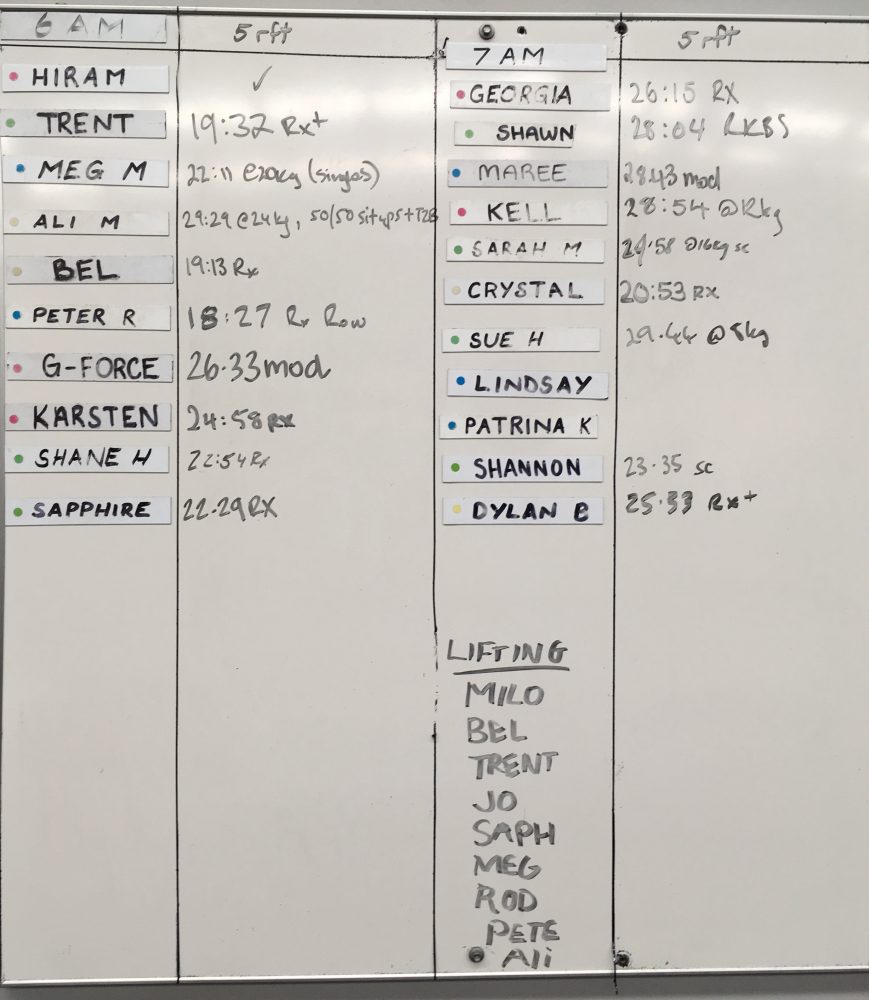 6 AM 5 rft
HIRAM ✓
TRENT 19:32 Rx+
MEG M 22:11 @20kg (singles)
ALI M 29:29 @24kg, 50/50 situps + T2B
BEL 19:13 Rx
PETER R 18:27 Rx Row
G-FORCE 26.33 mod
KARSTEN 24:58 RX
SHANE H 22:54 Rx
SAPPHIRE 22.29 RX
7 AM 5 rft
GEORGIA 26:15 RX
SHAWN 28:04 RKBS
MAREE 28.43 mod
KELL 28:54
SARAH M @16kg sc
CRYSTAL 20:53 RX
SUE H 29.44 @8kg
LINDSAY
PATRINA K
SHANNON 23.35 sc
DYLAN B 25.33 Rx+
LIFTING
MILO
BEL
TRENT
JO
SAPH
MEG
ROD
PETE
Ali